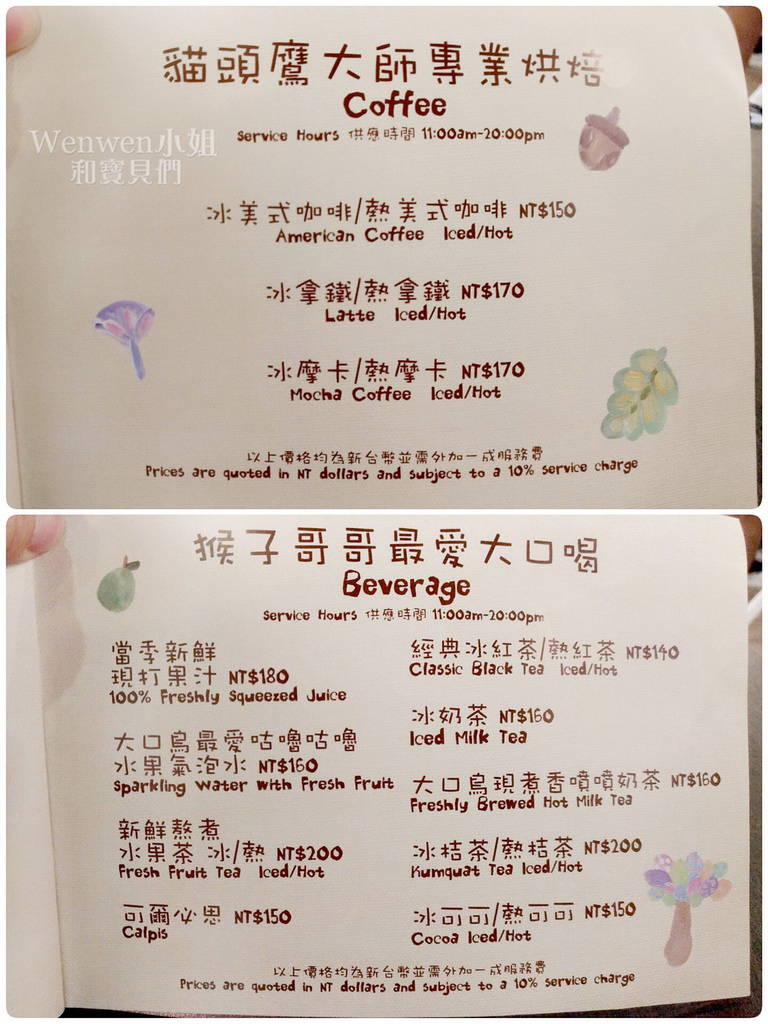 貓頭鷹大師專業烘焙
Coffee
Service Hours 供應時間 11:00am-20:00pm
Wenwen小姐
和寶貝們
冰美式咖啡/熱美式咖啡 NT$150
American Coffee Iced/Hot
冰拿鐵/熱拿鐵 NT$170
Latte Iced/Hot
冰摩卡/熱摩卡 NT$170
Mocha Coffee Iced/Hot
以上價格均為新台幣並需外加一成服務費
Prices are quoted in NT dollars and subject to a 10% service charge
猴子哥哥最愛大口喝
Beverage
Service Hours 供應時間 11:00am-20:00pm
當季新鮮
現打果汁 NT$180
100% Freshly Squeezed Juice
大口鳥最愛咕嚕咕嚕
水果氣泡水 NT$160
Sparkling Water with Fresh Fruit
新鮮熬煮
水果茶 冰/熱 NT$200
Fresh Fruit Tea Iced/Hot
可爾必思 NT$150
Calpis
經典冰紅茶/熱紅茶 NT$140
Classic Black Tea Iced/Hot
冰奶茶 NT$160
Iced Milk Tea
大口鳥現煮香噴噴奶茶 NT$160
Freshly Brewed Hot Milk Tea
冰桔茶/熱桔茶 NT$200
Kumquat Tea Iced/Hot
冰可可/熱可可 NT$150
Cocoa Iced/Hot
以上價格均為新台幣並需外加一成服務費
Prices are quoted in NT dollars and subject to a 10% service charge